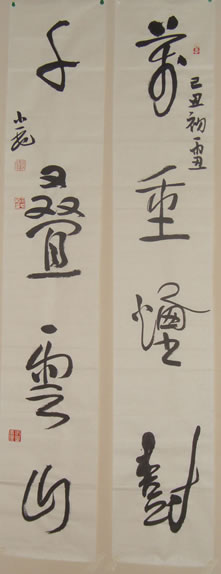 萬重煙樹
己丑初
千叠雲山
小